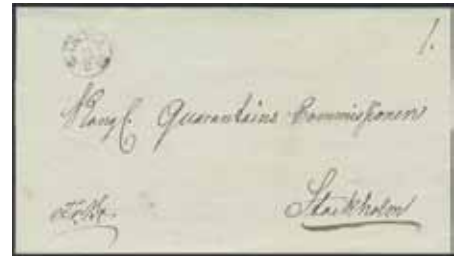 1.
Kongl. Quarantains Commissionen
Stockholm